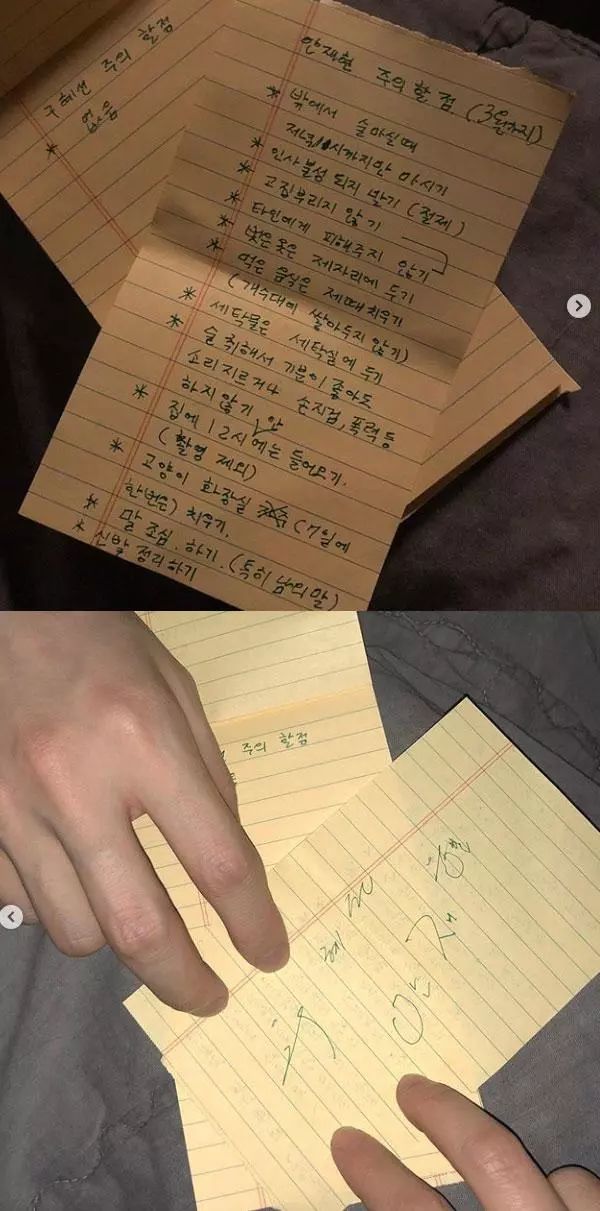 구혜선 주의 할점
* 없음
안재현 주의 할 점. (3월까지)
* 밖에서 술마실때
저녁 11시까지만 마시기
* 인사불성 되지 말기 (절제)
* 고집부리지 않기
타인에게 피해주지 않기
* 벗은옷은 제자리에 두기
* 먹은 음식은 제때 치우기
(개수대에 쌓아두지 않기)
* 세탁물은 세탁실에 두기
* 술 취해서 기분이 좋아도
소리지르거나 손지검, 폭력 등
하지 않기
* 집에 12시 안에는 들어오기.
(촬영 제외)
* 고양이 화장실 (7일에
한번은) 치우기.
* 말 조심. 하기. (특히 남의말)
* 신발 정리하기
주의 할점
구혜선
안재현